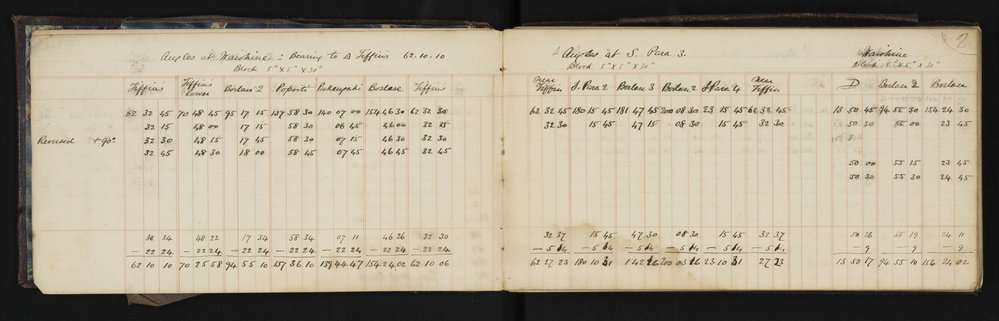 Angles at Waiohine :- Bearing to Δ Tiffins 62.10.10
Block 5" x 5" x 30"
Tiffins Tiffins Lower Borlase 2 Popoiti Pukengaki Borlase Tiffins
62 32 45 70 48 45 95 17 15 137 58 30 140 07 00 154 46 30 62 32 30
32 15 48 00 17 15 58 30 06 45 46 00 32 15
Reversed + 90° 32 30 48 15 17 45 58 30 07 15 46 30 32 30
32 45 48 30 18 00 58 45 07 45 46 45 32 45
32 34 48 22 17 34 58 34 07 11 46 26 32 30
- 22 24 - 22 24 - 22 24 - 22 24 - 22 24 - 22 24 - 22 24
62 10 10 70 25 58 94 55 10 137 36 10 139 44 47 154 24 02 62 10 06
2
Δ Angles at S. Para 3.
Block 5" x 5" x 30"
Near Tiffin S. Para 2 Borlase 3 Borlase 2 S Para 4 Near Tiffin
62 32 45 180 15 45 181 47 45 200 08 30 23 15 45 62 32 45
32 30 15 45 47 15 08 30 15 45 32 30
32 37 15 45 47 30 08 30 15 45 32 37
62 27 23 180 10 31 200 03 16 23 10 31 27 23
Waiohine
Block 5" x 5" x 30"
D Borlase 2 Borlase
13 50 45 94 55 30 154 24 30
50 30 55 00 23 45
50 00 55 15 23 45
50 30 55 30 24 45
50 26 55 19 24 11
- 9 - 9 - 9
13 50 17 94 55 10 154 24 02